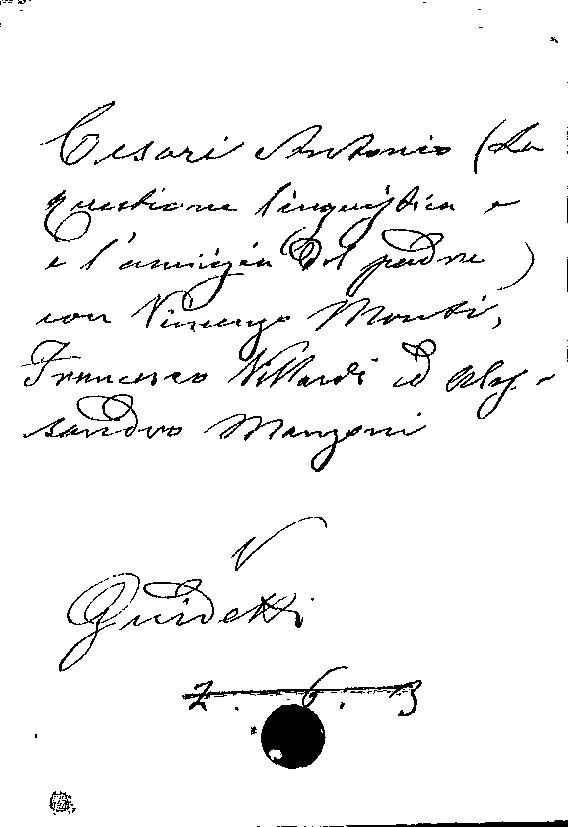 Cesari Antonio (La
questione linguistica e
e l'amicizia del padre)
con Vincenzo Monti,
Francesco Villardi ed Ales-
sandro Manzoni
V
Guidetti
2. 6. B